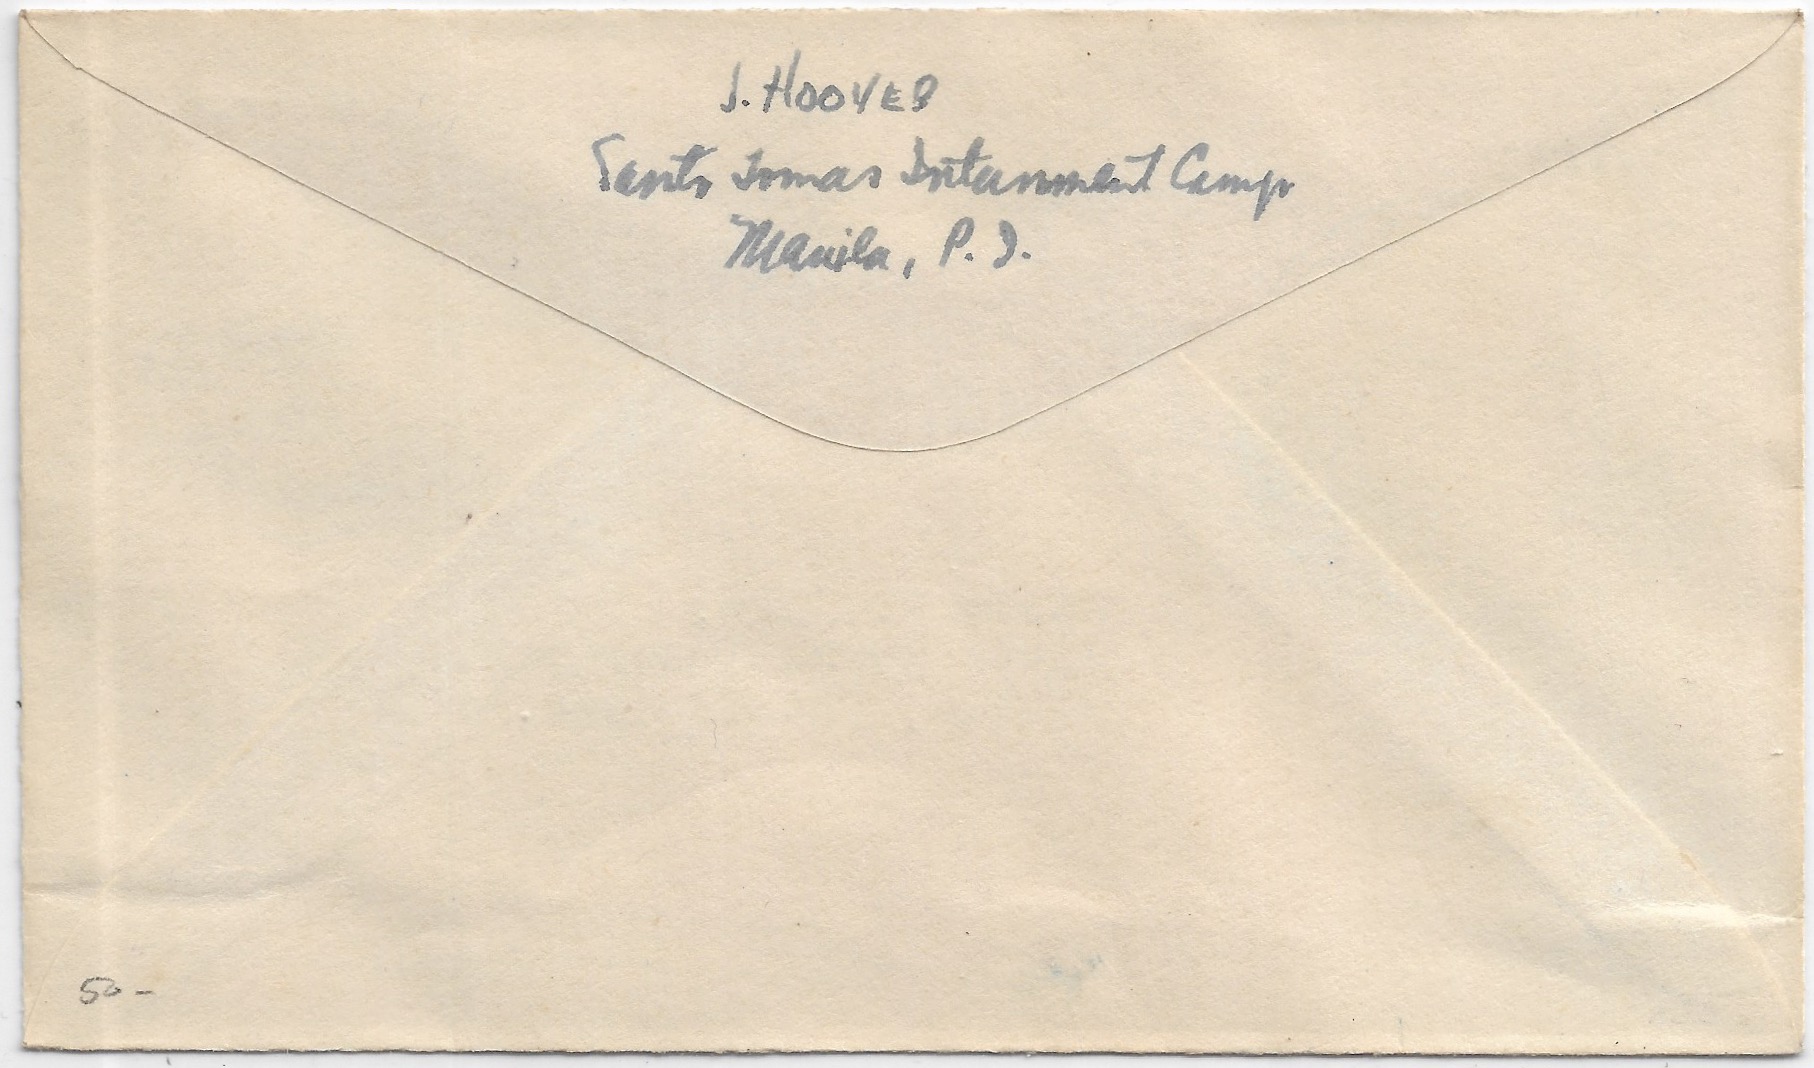 J. HOOVER
Santo Tomas Internment Camp
Manila, P. I.
50 -